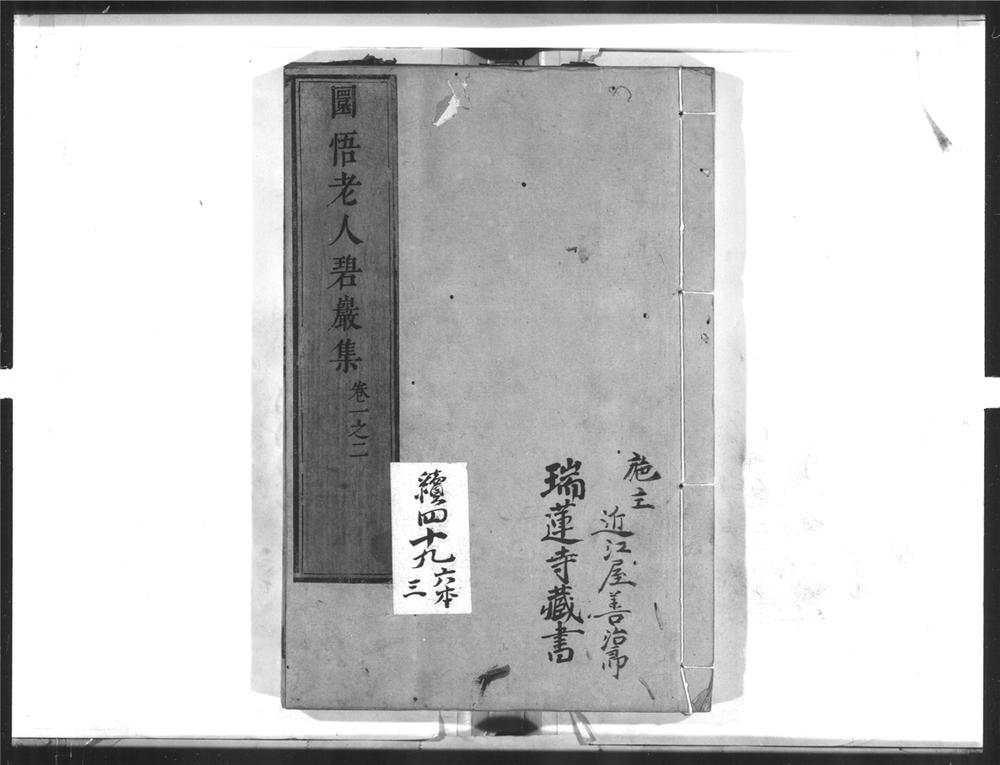 施主
近江屋善治郎
瑞蓮寺藏書
續四十九
六本
三
圜悟老人碧巖集 卷一之二